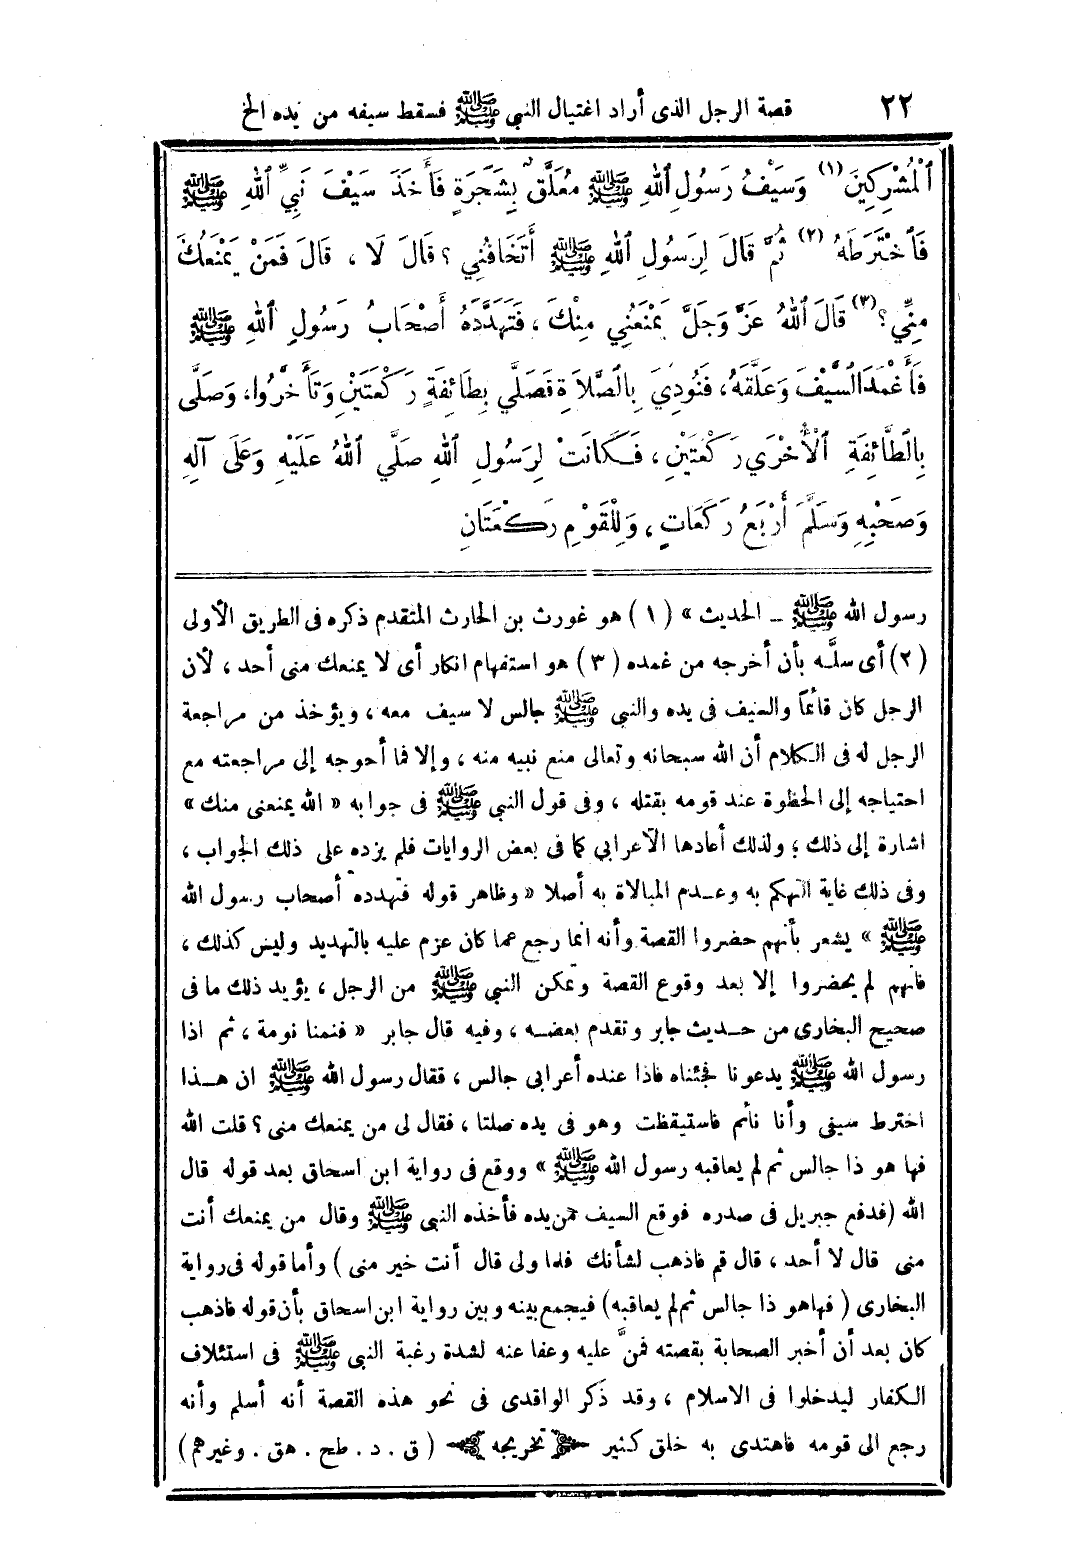 ٢٢ قصة الرجل الذى أراد اغتيال النبي ﷺ فسقط سيفه من يده الخ
ٱلْمُشْرِكِينَ (١) وَسَيْفُ رَسُولِ ٱللهِ ﷺ مُعَلَّقٌ بِشَجَرَةٍ فَأَخَذَ سَيْفَ نَبِيِّ ٱللهِ ﷺ
فَٱخْتَرَطَهُ (٢) ثُمَّ قَالَ لِرَسُولِ ٱللهِ ﷺ أَتَخَافُنِي ؟ قَالَ لَا ، قَالَ فَمَنْ يَمْنَعُكَ
مِنِّي ؟ (٣) قَالَ ٱللهُ عَزَّ وَجَلَّ يَمْنَعُنِي مِنْكَ ، فَتَهَدَّدَهُ أَصْحَابُ رَسُولِ ٱللهِ ﷺ
فَأَغْمَدَ السَّيْفَ وَعَلَّقَهُ، فَنُودِيَ بِالصَّلَاةِ فَصَلَّي بِطَائِفَةٍ رَكْعَتَيْنِ وَتَأَخَّرُوا، وَصَلَّى
بِالطَّائِفَةِ ٱلْأُخْرَي رَكْعَتَيْنِ ، فَكَانَتْ لِرَسُولِ ٱللهِ صَلَّي ٱللهُ عَلَيْهِ وَعَلَى آلِهِ
وَصَحْبِهِ وَسَلَّمَ أَرْبَعُ رَكَعَاتٍ ، وَلِلْقَوْمِ رَكْعَتَانِ
رسول الله ﷺ ــ الحديث » (١) هو غورث بن الحارث المتقدم ذكره فى الطريق الأولى
(٢) أى سلَّه بأن أخرجه من غمده (٣) هو استفهام انكار أى لا يمنعك منى أحد ، لأن
الرجل كان قائماً والسيف فى يده والنبي ﷺ جالس لا سيف معه ، ويؤخذ من مراجعة
الرجل له فى الكلام أن الله سبحانه وتعالى منع نبيه منه ، وإلا فما أحوجه إلى مراجعته مع
احتياجه إلى الحظوة عند قومه بقتله ، وفى قول النبي ﷺ فى جوابه « الله يمنعنى منك »
اشارة إلى ذلك ؛ ولذلك أعادها الأعرابي كما فى بعض الروايات فلم يزده على ذلك الجواب ،
وفى ذلك غاية التهكم به وعدم المبالاة به أصلا « وظاهر قوله فتهدده أصحاب رسول الله
ﷺ » يشعر بأنهم حضروا القصة وأنه انما رجع عما كان عزم عليه بالتهديد وليس كذلك ،
فأنهم لم يحضروا إلا بعد وقوع القصة وتمكن النبي ﷺ من الرجل ، يؤيد ذلك ما فى
صحيح البخارى من حديث جابر وتقدم بعضه ، وفيه قال جابر « فنمنا نومة ، ثم اذا
رسول الله ﷺ يدعونا فجئناه فاذا عنده أعرابي جالس ، فقال رسول الله ﷺ ان هذا
اخترط سيفى وأنا نائم فاستيقظت وهو فى يده صلتا ، فقال لى من يمنعك منى ؟ قلت الله
فها هو ذا جالس ثم لم يعاقبه رسول الله ﷺ » ووقع فى رواية ابن اسحاق بعد قوله قال
الله (فدفع جبريل فى صدره فوقع السيف من يده فأخذه النبى ﷺ وقال من يمنعك أنت
منى قال لا أحد ، قال قم فاذهب لشأنك فلما ولى قال أنت خير منى) وأما قوله فى رواية
البخارى (فهاهو ذا جالس ثم لم يعاقبه) فيجمع بينه وبين رواية ابن اسحاق بأن قوله فاذهب
كان بعد أن أخبر الصحابة بقصته فمنَّ عليه وعفا عنه لشدة رغبة النبي ﷺ فى استئلاف
الكفار ليدخلوا فى الاسلام ، وقد ذكر الواقدى فى نحو هذه القصة أنه أسلم وأنه
رجع الى قومه فاهتدى به خلق كثير تخريجه (ق . د . طح . هق . وغيرهم)